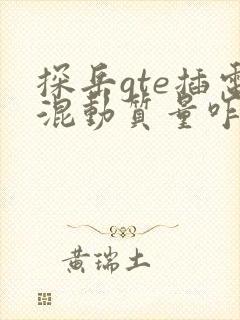 探岳gte插電
混動質量咋
黄瑞土